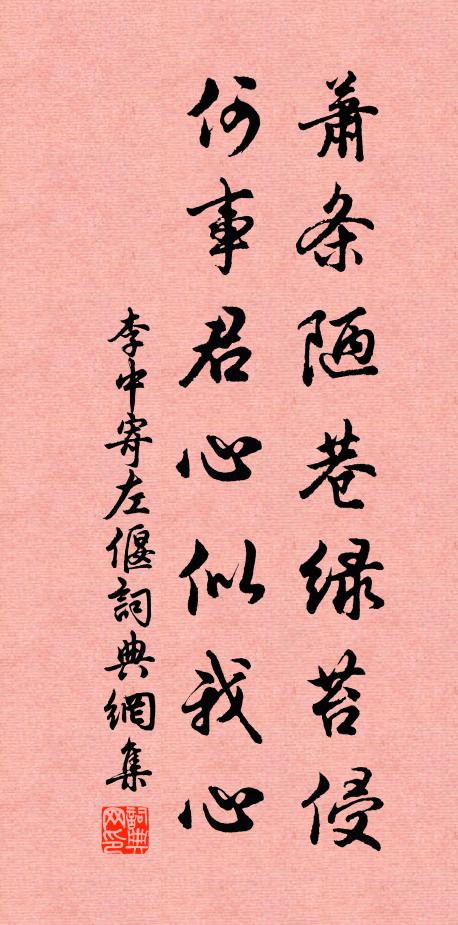 蕭条陋巷緑苔侵
何事君心似我心
李中寄左偃詞典網集
詞典网印